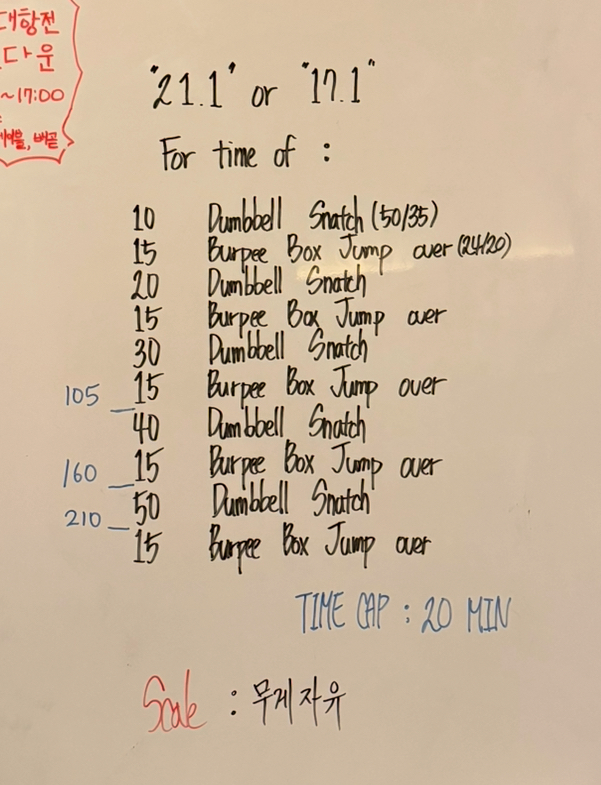 대항전
다운
~17:00
배곧
"21.1" or "17.1"
For time of :
10 Dumbbell Snatch (50/35)
15 Burpee Box Jump over (24/20)
20 Dumbbell Snatch
15 Burpee Box Jump over
30 Dumbbell Snatch
105 15 Burpee Box Jump over
40 Dumbbell Snatch
160 15 Burpee Box Jump over
50 Dumbbell Snatch
210 15 Burpee Box Jump over
TIME CAP : 20 MIN
Scale : 무게자유